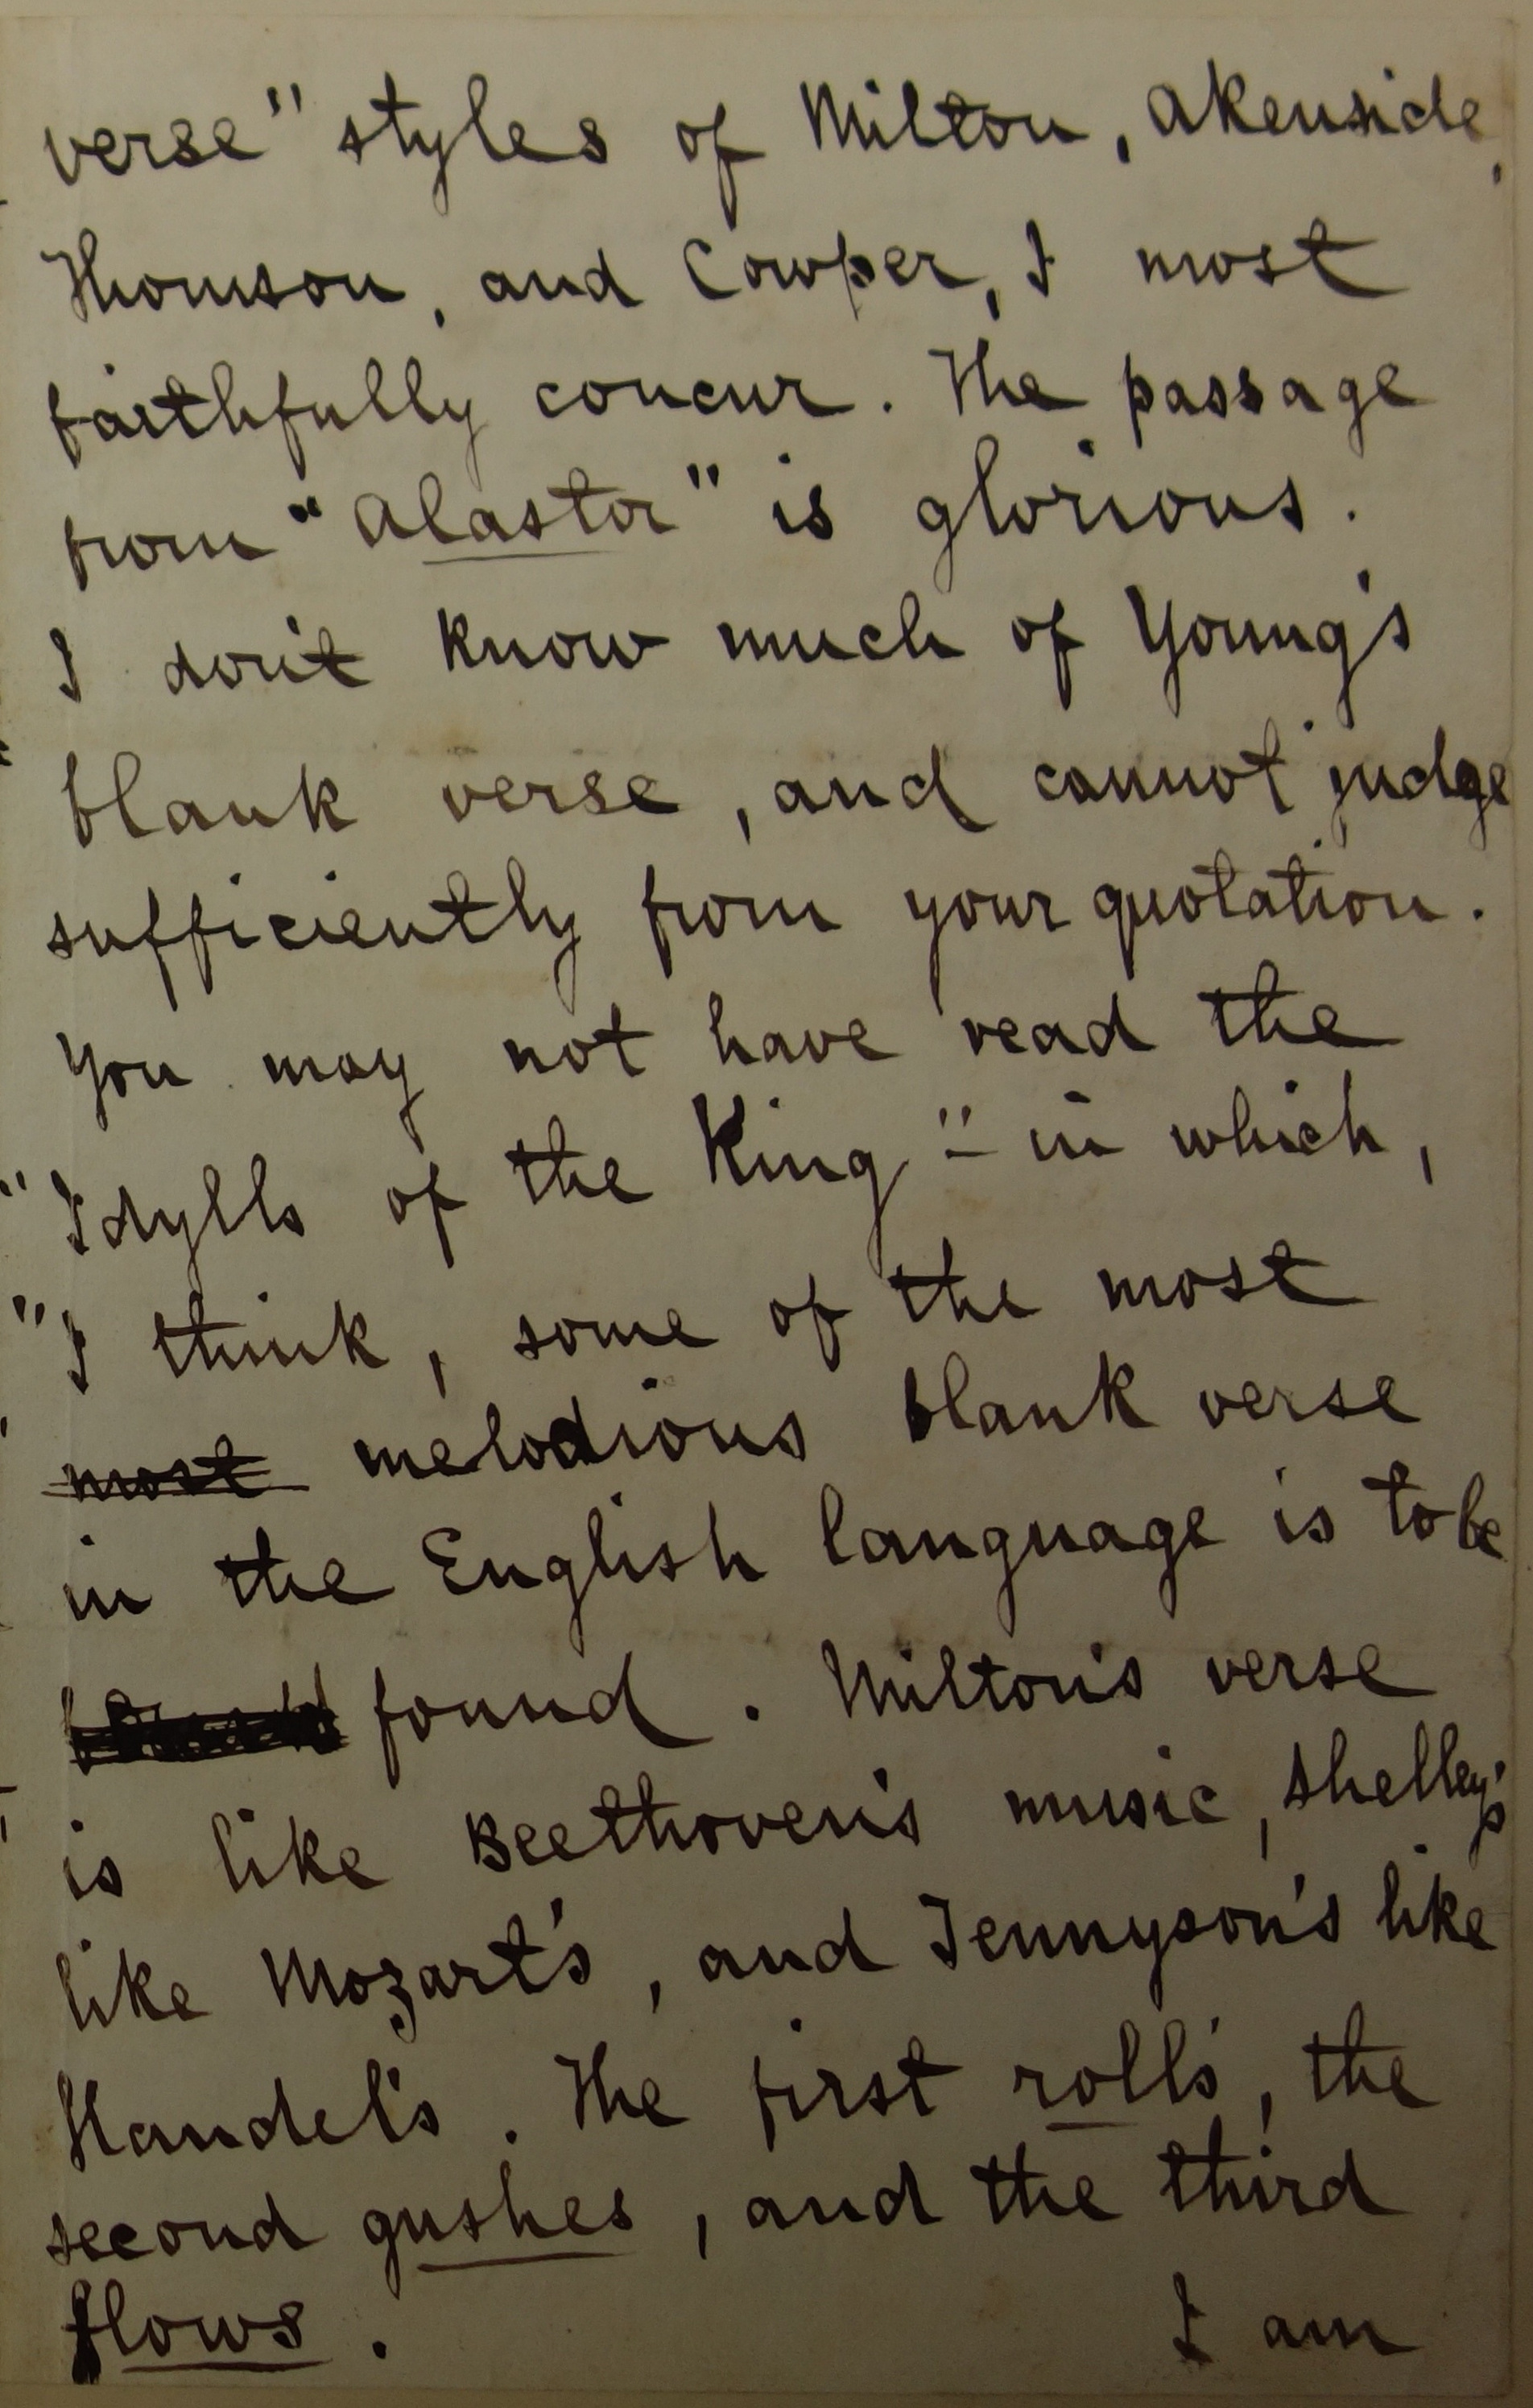 verse" styles of Milton, Akenside,
Thomson, and Cowper, I most
faithfully concur. The passage
from "Alastor" is glorious.
I don't know much of Young's
blank verse, and cannot judge
sufficiently from your quotation.
You may not have read the
"Idylls of the King" - in which,
"I think, some of the most
most melodious blank verse
in the English language is to be
found. Milton's verse
is like Beethoven's music, Shelley's
like Mozart's, and Tennyson's like
Handel's. The first rolls, the
second gushes, and the third
flows. I am